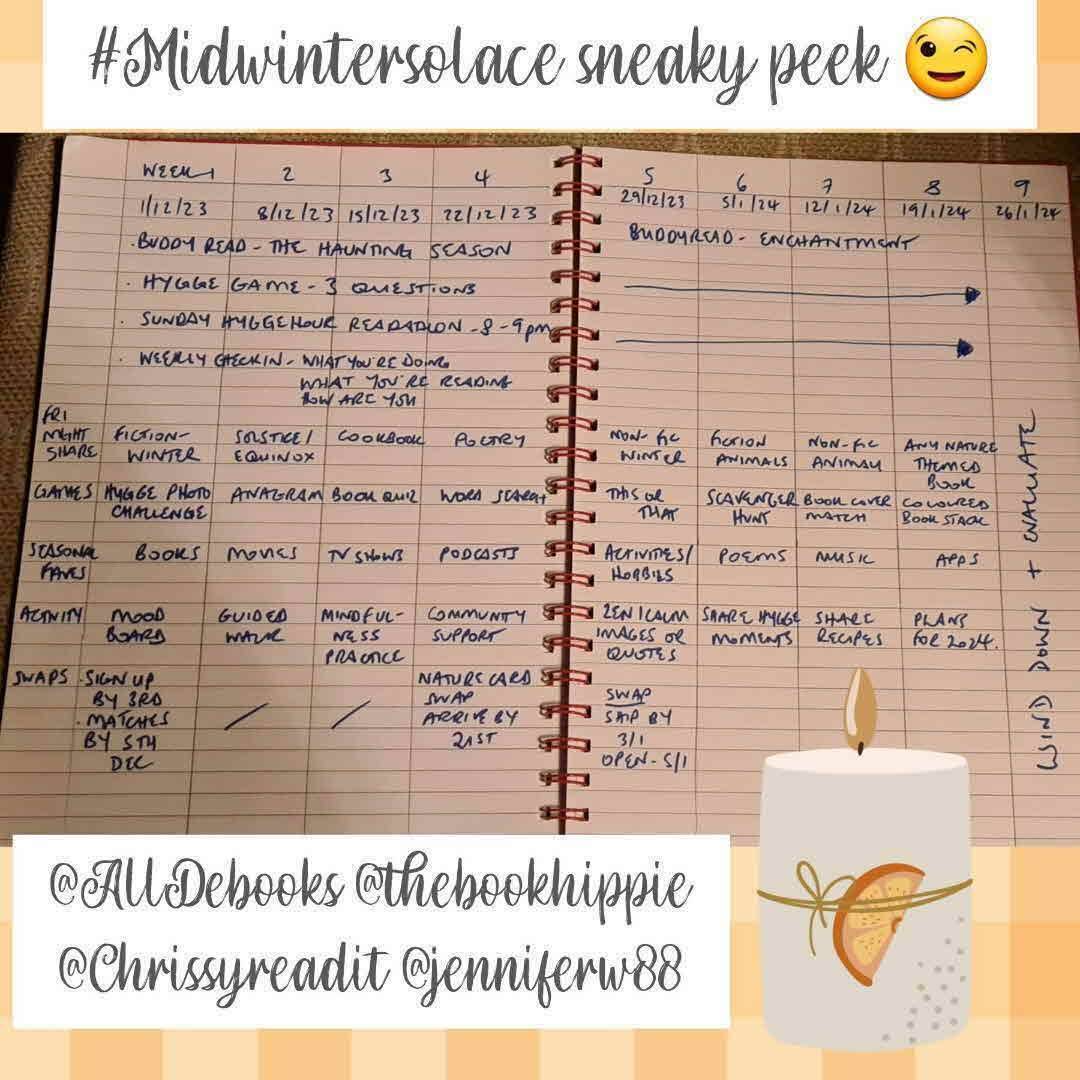 #Midwintersolace sneaky peek
WEEK 1 2 3 4 5 6 7 8 9
1/12/23 8/12/23 15/12/23 22/12/23 29/12/23 5/1/24 12/1/24 19/1/24 26/1/24
· BUDDY READ - THE HAUNTING SEASON
BUDDYREAD - ENCHANTMENT
· HYGGE GAME - 3 QUESTIONS
· SUNDAY HYGGEHOUR READATHON - 8 - 9pm
· WEEKLY CHECKIN - WHAT YOU'RE DOING
WHAT YOU'RE READING
HOW ARE YOU
FRI
NIGHT FICTION- SOLSTICE/ COOKBOOK POETRY NON-FIC FICTION NON-FIC ANY NATURE
SHARE WINTER EQUINOX WINTER ANIMALS ANIMAL THEMED
BOOK
GAMES HYGGE PHOTO ANAGRAM BOOK QUIZ WORD SEARCH THIS OR SCAVENGER BOOK COVER COLOURED
CHALLENGE THAT HUNT MATCH BOOK STACK
SEASONAL BOOKS MOVIES TV SHOWS PODCASTS ACTIVITIES/ POEMS MUSIC APPS
FAVES HOBBIES
ACTIVITY MOOD GUIDED MINDFUL- COMMUNITY ZEN/CALM SHARE HYGGE SHARE PLANS
BOARD WALK NESS SUPPORT IMAGES OR MOMENTS RECIPES FOR 2024.
PRACTICE QUOTES
SWAPS · SIGN UP NATURE CARD SWAP
BY 3RD SWAP SHIP BY
· MATCHES ARRIVE BY 3/1
BY 5TH 21ST OPEN - 5/1
DEC
WIND DOWN + EVALUATE
@AllDebooks @thebookhippie
@Chrissyreadit @jenniferw88